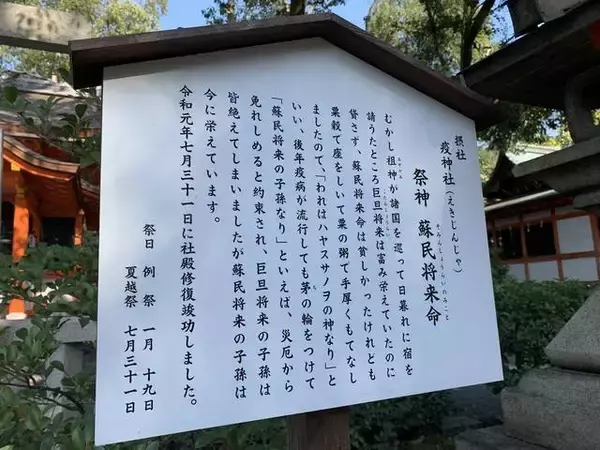 摂社
疫神社（えきじんじゃ）
祭神 蘇民将来命
そみんしょうらいのみこと
むかし祖神が諸国を巡って日暮れに宿を
請うたところ巨旦将来は富み栄えていたのに
貸さず、蘇民将来命は貧しかったけれども
粟殻で座をしいて粟の粥で手厚くもてなし
ましたので、「われはハヤスサノヲの神なり」と
いい、後年疫病が流行しても茅の輪をつけて
「蘇民将来の子孫なり」といえば、災厄から
免れしめると約束され、巨旦将来の子孫は
皆絶えてしまいましたが蘇民将来の子孫は
今に栄えています。
令和元年七月三十一日に社殿修復竣功しました。
祭日 例祭 一月 十九日
夏越祭 七月三十一日